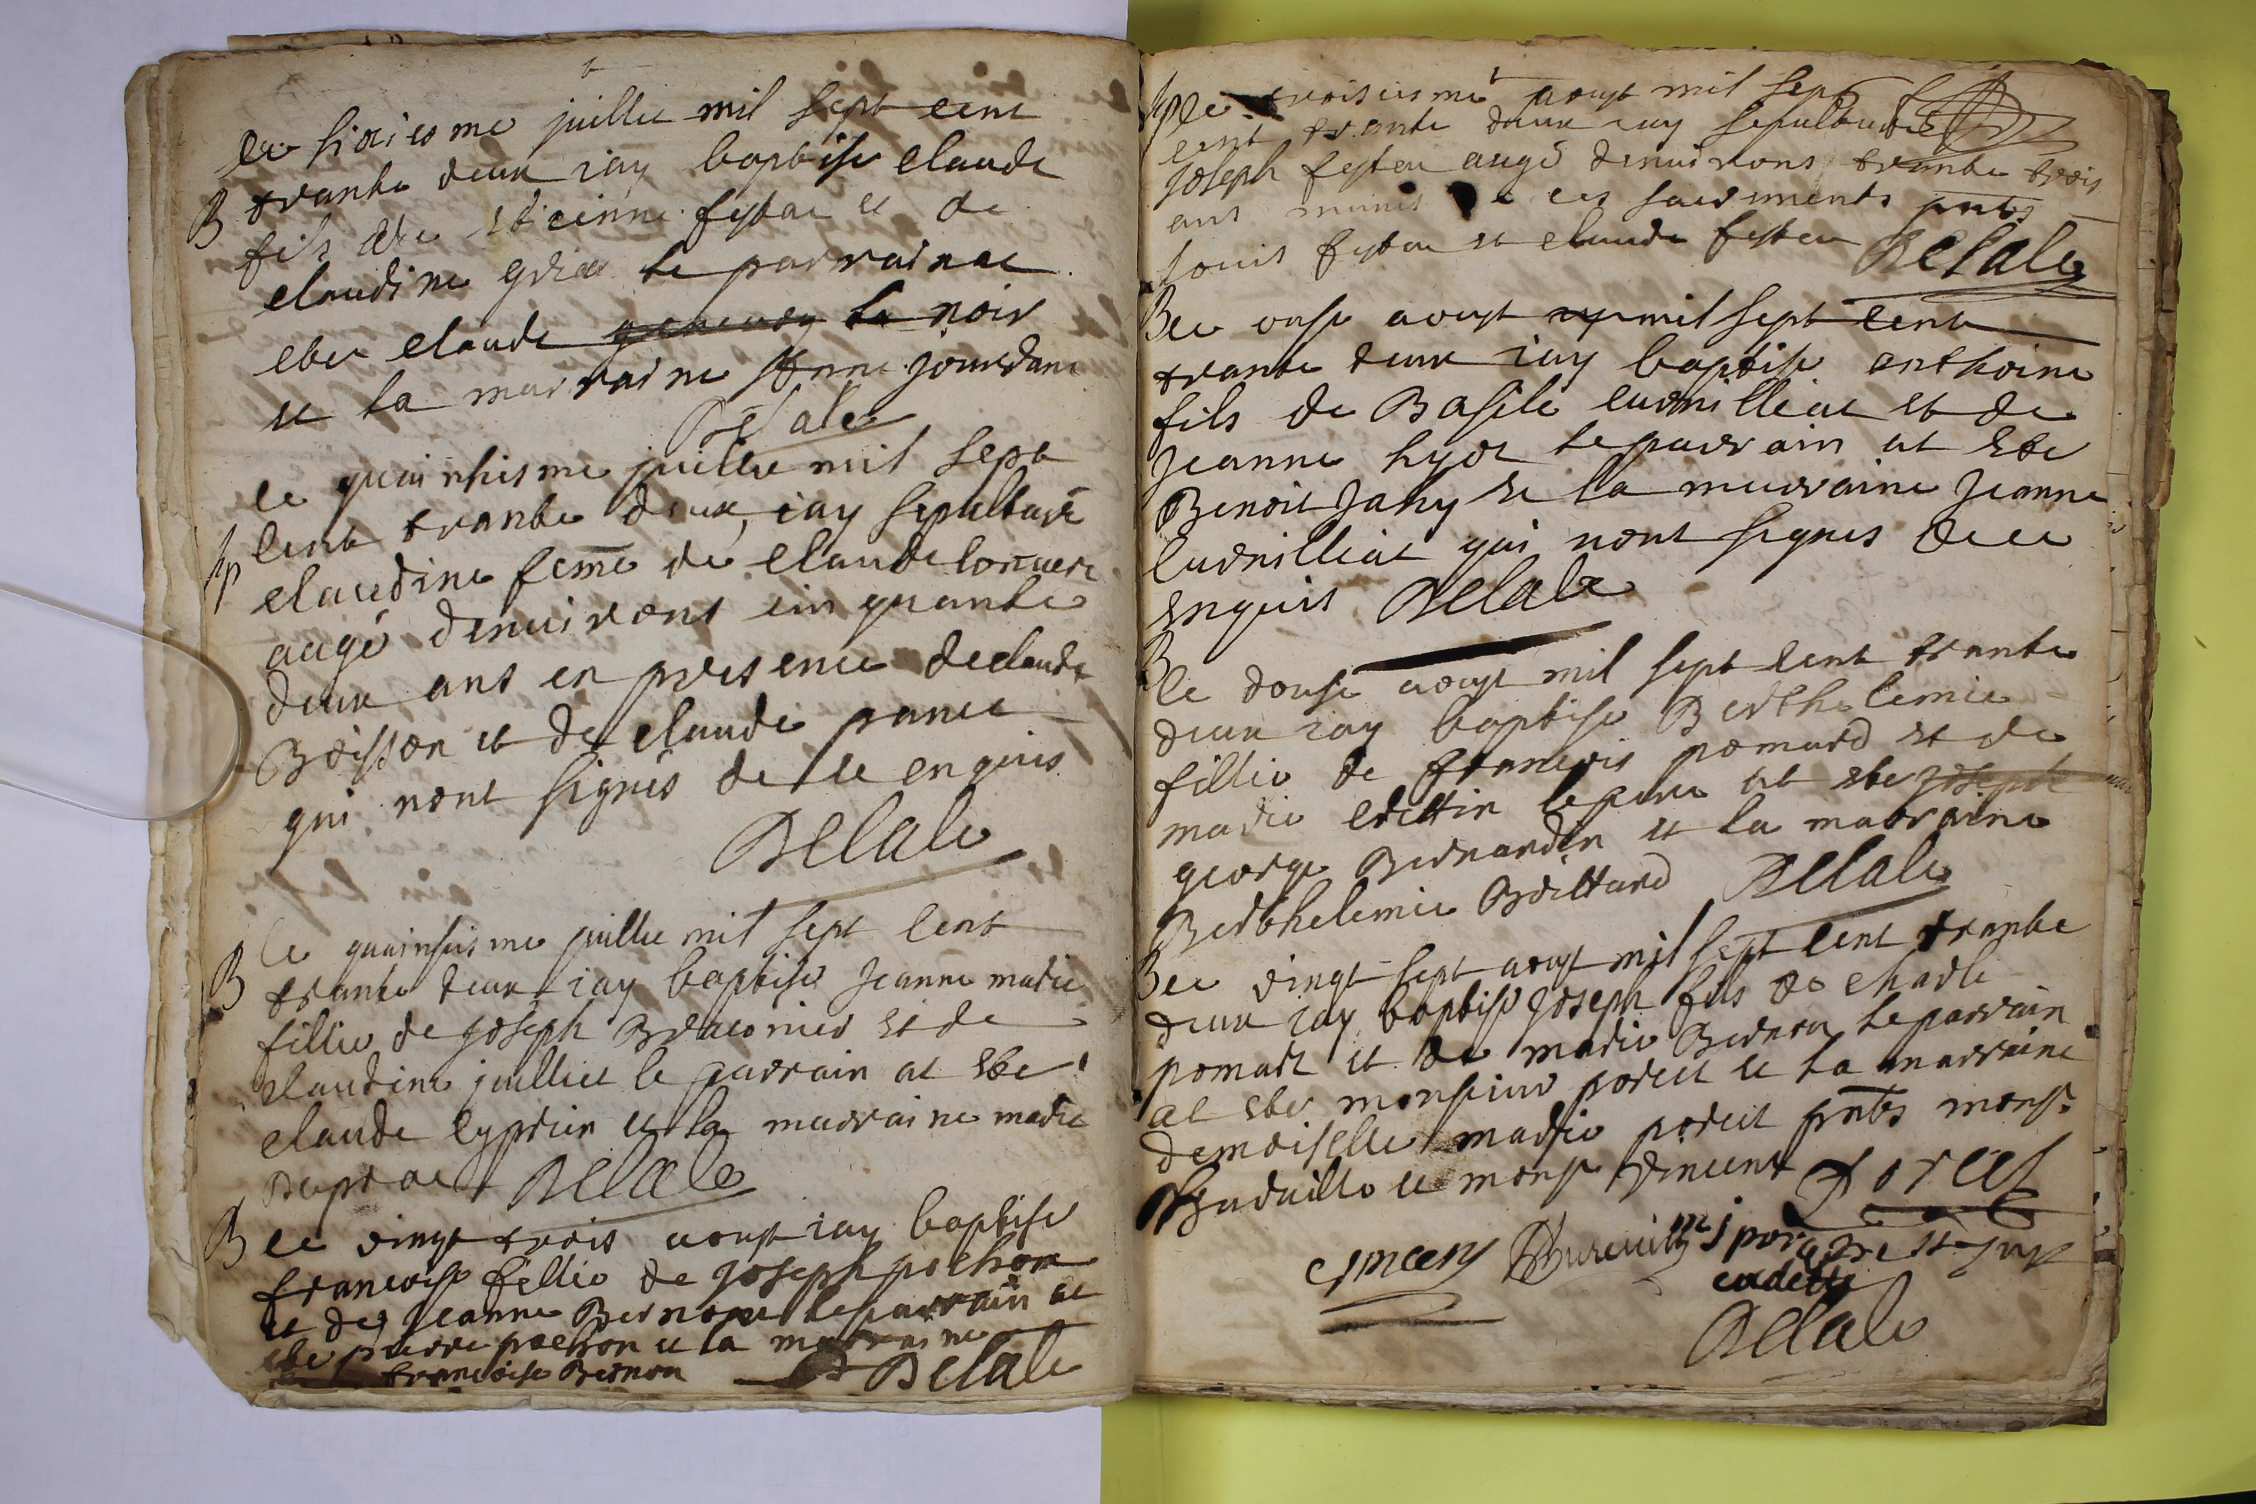 le sixiesme juillie mil sept cent
B trante deux iay baptise claude
fils de etienne festae et de
claudine gria le parrain ae
ebe claude le noir
et la marraine Anne jourdane
Delale
le quainhisme juillie mil sept
Sp cent trante deux iay sepulturé
claudine feme de claude
augé denuirons cinquante
deux ans en presence de claude
Boisson et de claude panie
qui nont signés de ce enquis
Delale
le quainsisme juillie mil sept cent
B trante deux iay baptise Jeanne marie
fillie de joseph Braconier et de
claudine juilliet le parrain at ebe
claude cyprien et la marraine marie
Delale
B le vingt trois aoust iay baptise
francoise fillie de joseph pochon
et de Jeanne Bernon le parrain at
ebe pierre pochon et la marraine
francoise Bernon Delale
Sp le troisiesme aoust mil sept
cent trante deux iay sepulturé
Joseph festeu augé denuirons trante trois
ans munis de ces sacrements pnts
louis festeu et claude festeu Delale
B le onse aoust mil sept cent
trante deux iay baptise anthoine
fils de Basile curnilliat et de
Jeanne hyot le parrain at ebe
Benoit Jany et la marraine Jeanne
curnilliat qui nont signes de ce
enquis Delale
B le douse aoust mil sept cent trante
deux iay baptise Berthelemie
fillie de francois pomard et de
marie crettin le parn at ebe joseph
george Bernardin et la marraine
Berthelemie Brittard Delale
B le vingt sept aoust mil sept cent trante
deux iay baptise Joseph fils de charle
pomart et de marie Bernon le parrain
at ebe monsieur poret et la marraine
demoiselle marie poret pnts mons.
et mons vincent Porcet
cadette
Delale